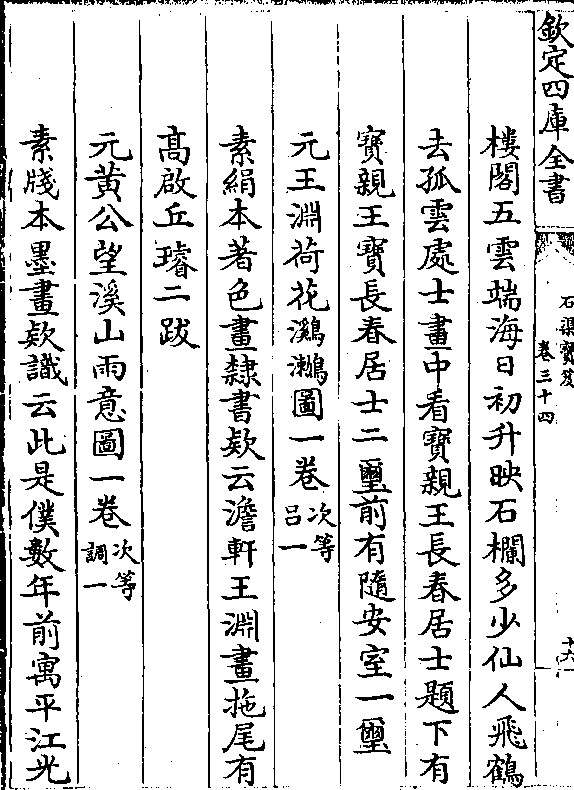 欽定四庫全書
石渠寳笈
卷三十四
十六
樓閣五雲端海日初升映石欄多少仙人飛鶴
去孤雲處士畫中看寳親王長春居士題下有
寳親王寳長春居士二璽前有隨安室一璽
元王淵荷花鸂鶒圖一卷次等吕一
素絹本著色畫隸書欵云澹軒王淵畫拖尾有
高啟丘璿二跋
元黃公望溪山雨意圖一卷次等調一
素牋本墨畫欵識云此是僕數年前寓平江光